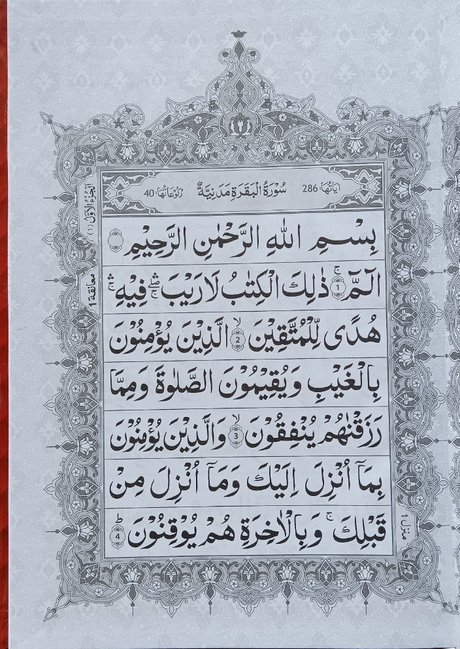 اٰیَاتُهَا 286 سُوْرَةُ الْبَقَرَةِ مَدَنِیَّةٌ رُكُوْعَاتُهَا 40
بِسْمِ اللهِ الرَّحْمٰنِ الرَّحِیْمِ
الٓمّٓ ۚ 1 ذٰلِكَ الْكِتٰبُ لَا رَیْبَ ۛۖ فِیْهِ ۛۚ
هُدًی لِّلْمُتَّقِیْنَ ۙ 2 الَّذِیْنَ یُؤْمِنُوْنَ
بِالْغَیْبِ وَیُقِیْمُوْنَ الصَّلٰوةَ وَمِمَّا
رَزَقْنٰهُمْ یُنْفِقُوْنَ ۙ 3 وَالَّذِیْنَ یُؤْمِنُوْنَ
بِمَاۤ اُنْزِلَ اِلَیْكَ وَمَاۤ اُنْزِلَ مِنْ
قَبْلِكَ ۚ وَبِالْاٰخِرَةِ هُمْ یُوْقِنُوْنَ ؕ 4
اَلْجُزْءُ الْاَوَّلُ (۱)
معانقة 1
منزل ۱